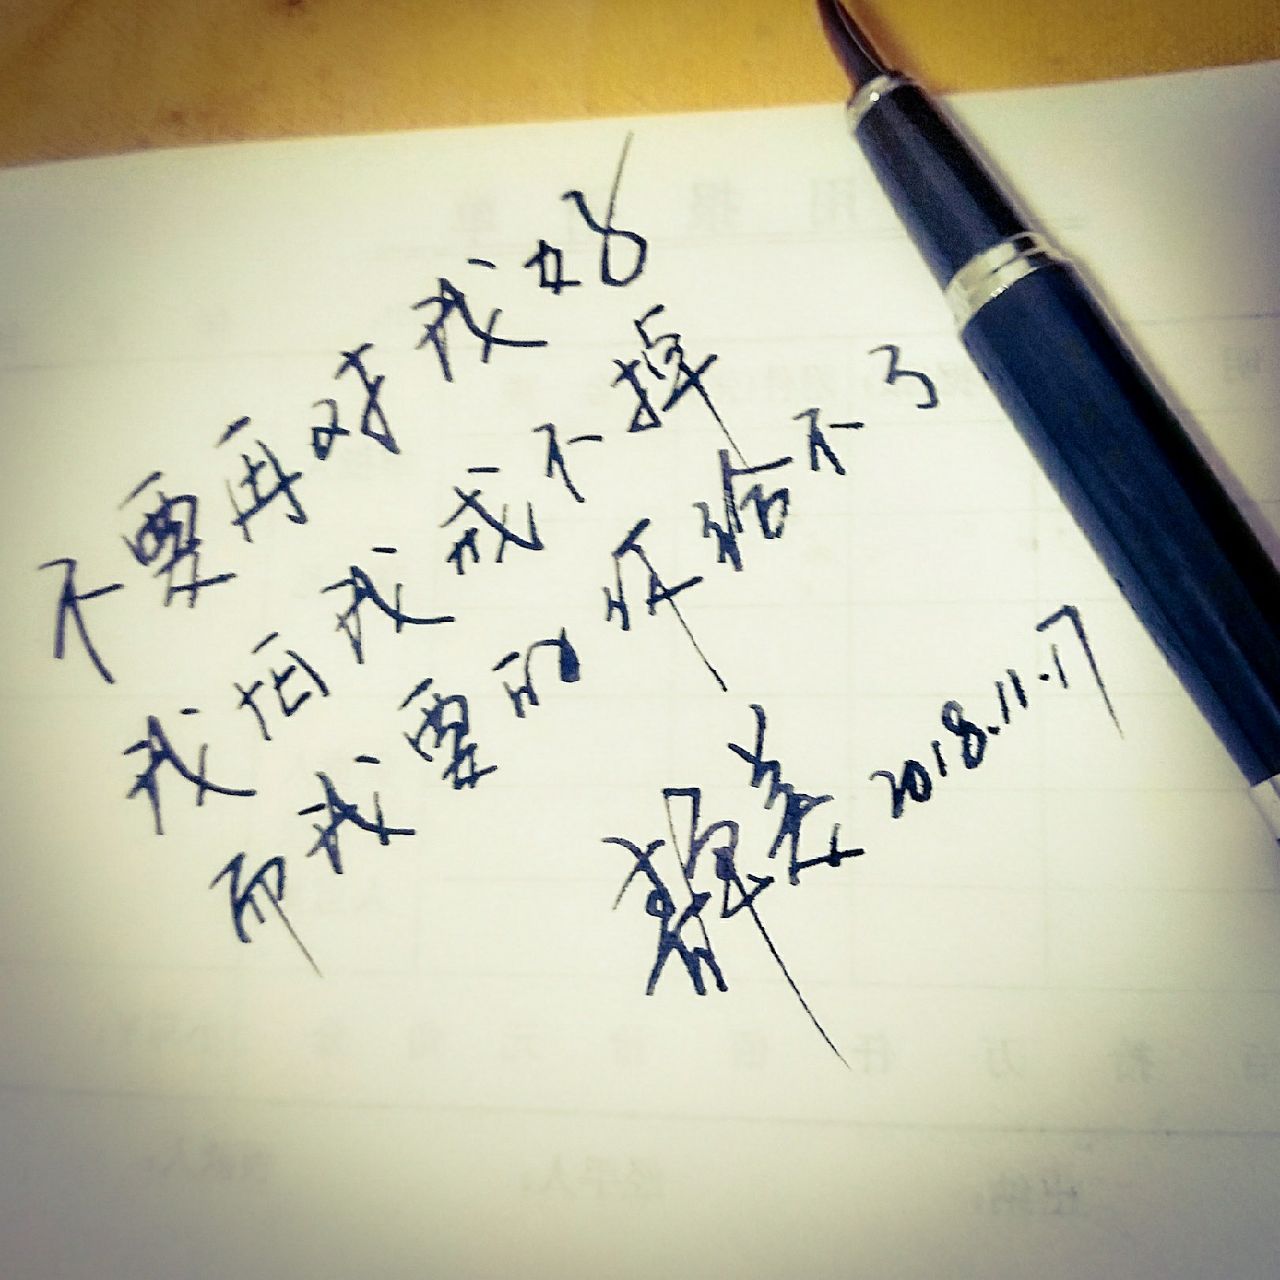 不要再对我好
我怕我戒不掉
而我要的你给不了
2018.11.17